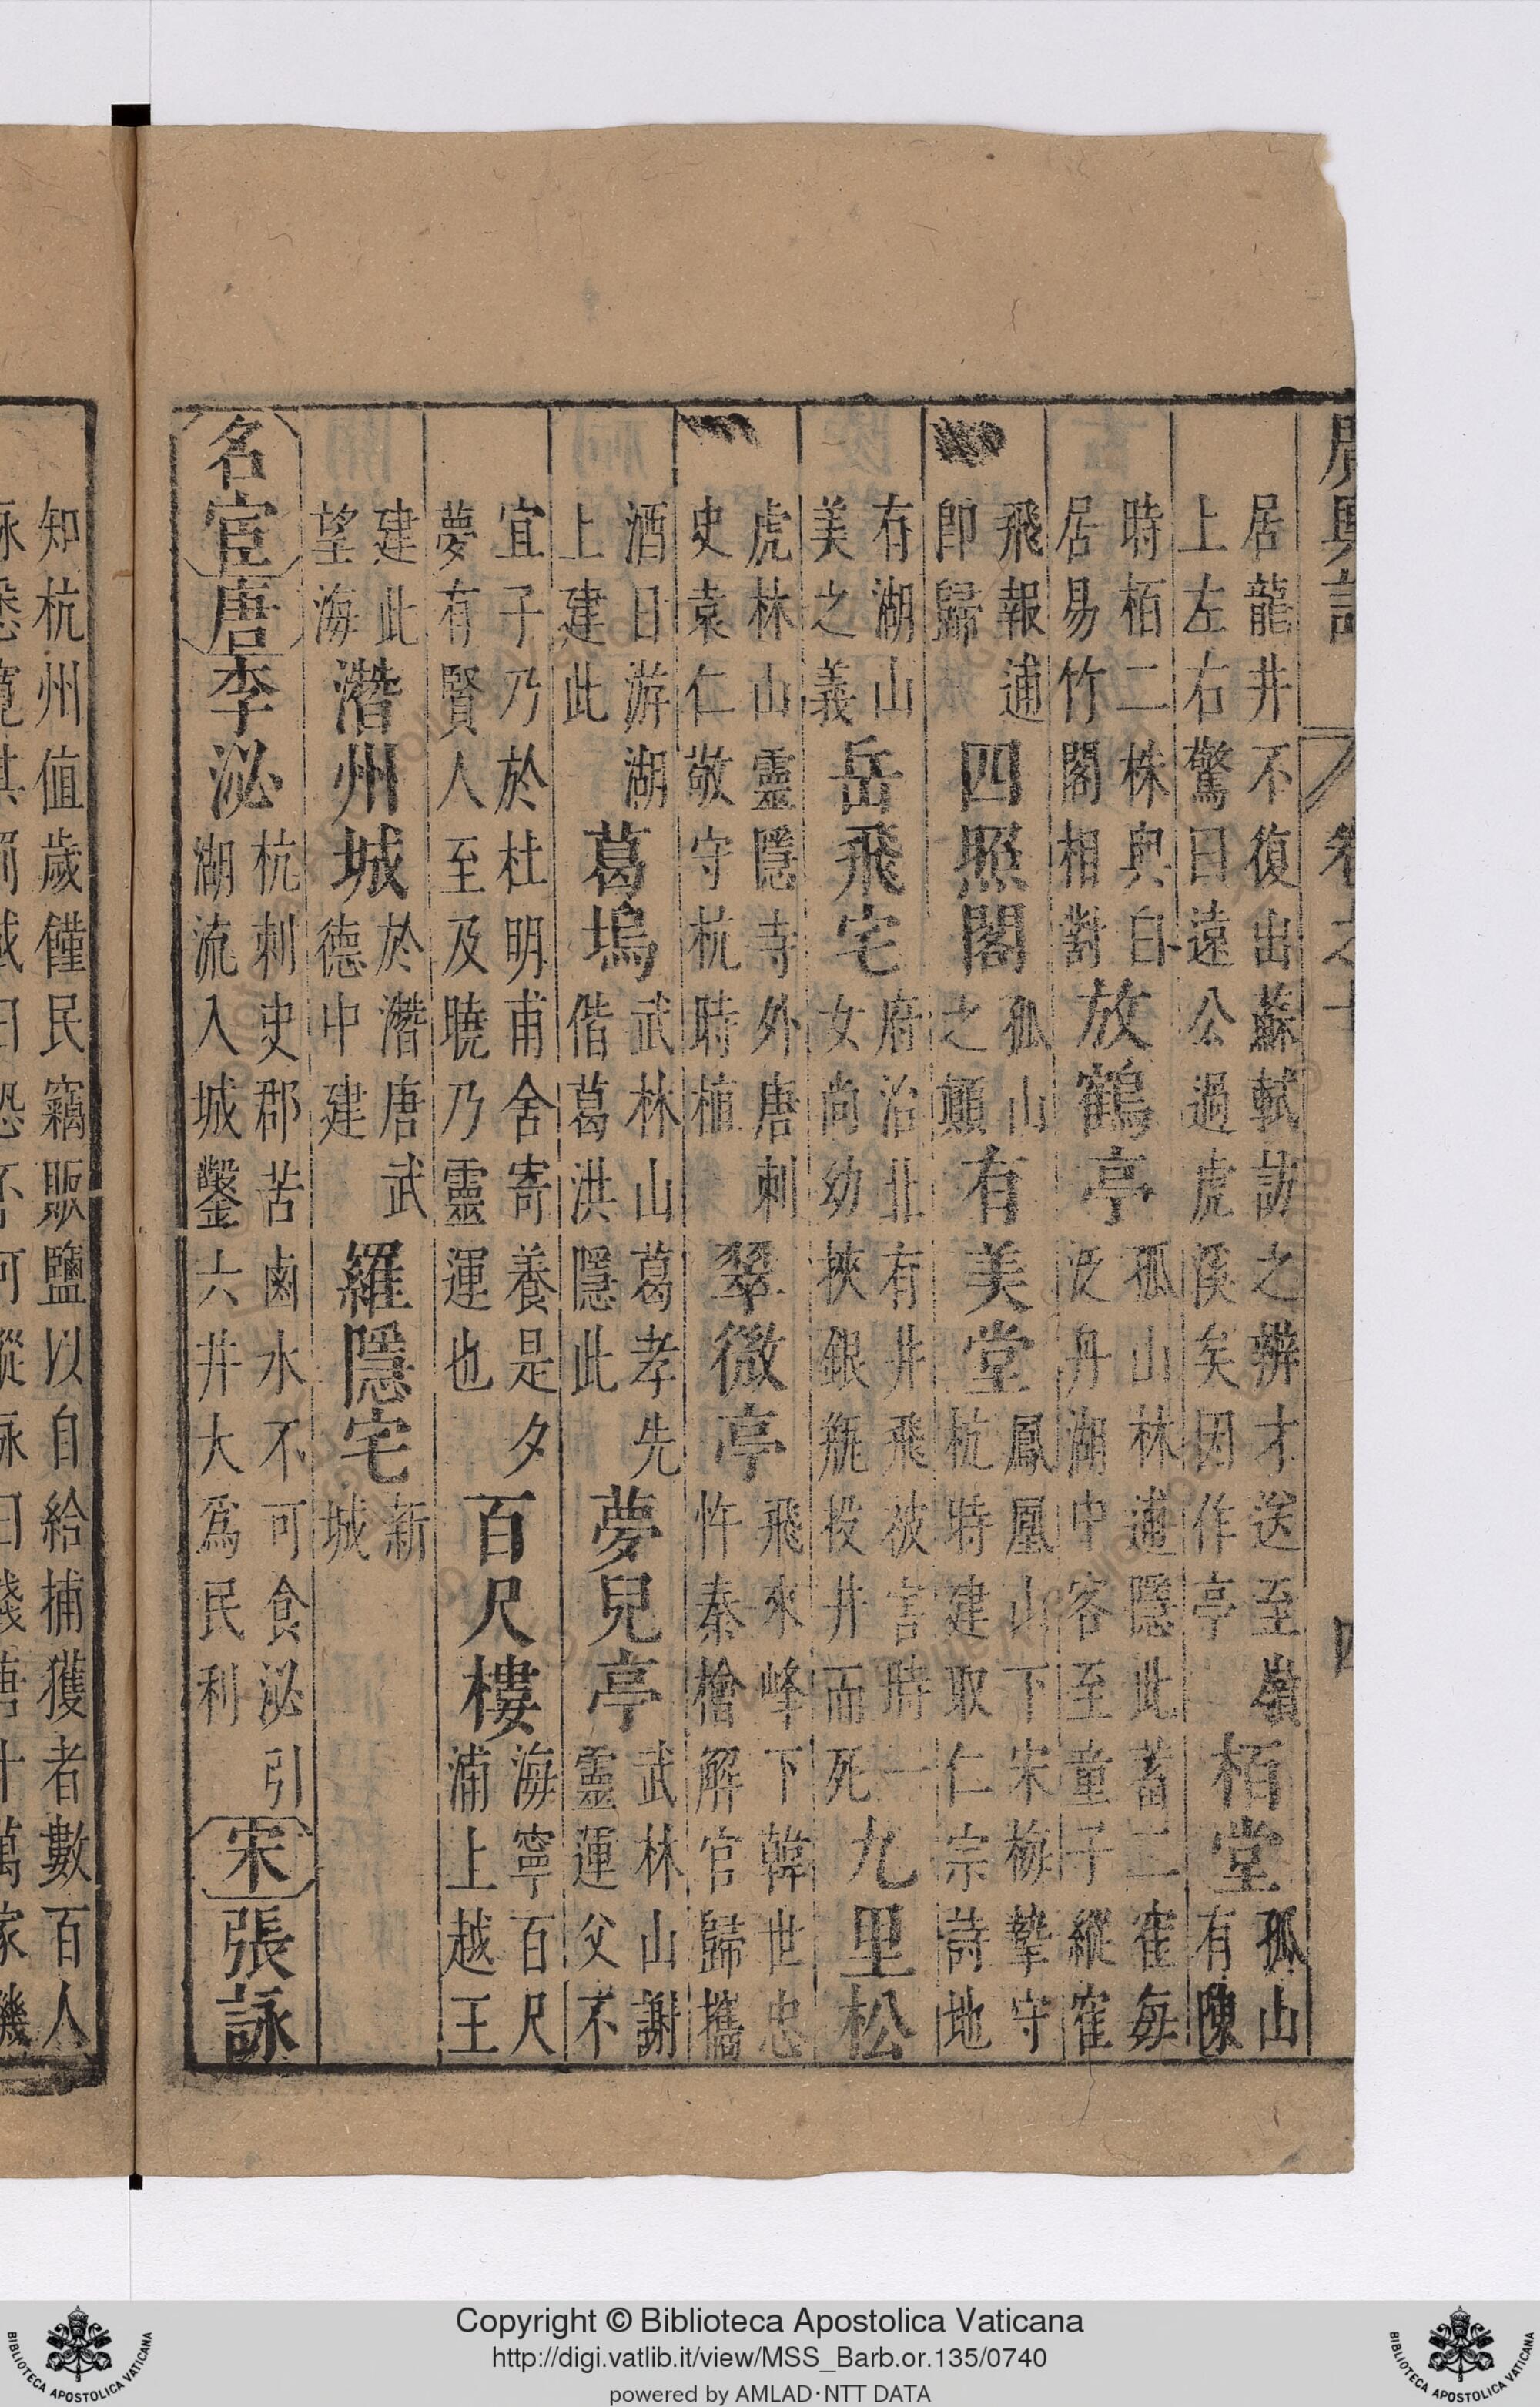 廣輿記 卷之十 四
居龍井不復出蘇軾訪之辨才送至嶺上左右驚曰遠公過虎溪矣因作亭栢堂孤山有陳
時栢二株與白居易竹閣相對放鶴亭孤山林逋隱此蓄二寉每泛舟湖中客至童子縱寉
飛報逋即歸四照閣孤山之顛有美堂鳳凰山下宋梅摯守杭時建取仁宗詩地
有湖山美之義岳飛宅府治北有井飛被害時一女尚幼挾銀瓶投井而死九里松
虎林山靈隱寺外唐刺史袁仁敬守杭時植翠微亭飛來峰下韓世忠忤秦檜解官歸攜
酒日游湖上建此葛塢武林山葛孝先偕葛洪隱此夢兒亭武林山謝靈運父不
宜子乃於杜明甫舍寄養是夕夢有賢人至及曉乃靈運也百尺樓海寧百尺浦上越王
建此望海潛州城於潛唐武德中建羅隱宅新城
名宦唐李泌杭刺史郡苦鹵水不可食泌引湖流入城鑿六井大爲民利宋張詠
知杭州值歲饉民竊販鹽以自給捕獲者數百人
詠悉寬其罰或曰恐不可縱詠曰錢唐十萬家饑
Copyright © Biblioteca Apostolica Vaticana
http://digi.vatlib.it/view/MSS_Barb.or.135/0740
powered by AMLAD·NTT DATA
BIBLIOTECA APOSTOLICA VATICANA
BIBLIOTECA APOSTOLICA VATICANA